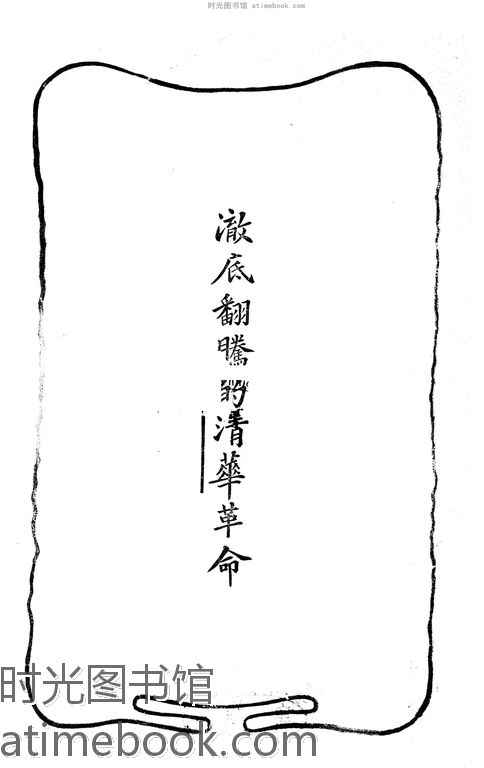 时光图书馆 atimebook.com
澈底翻騰的清華革命
时光图书馆
atimebook.com